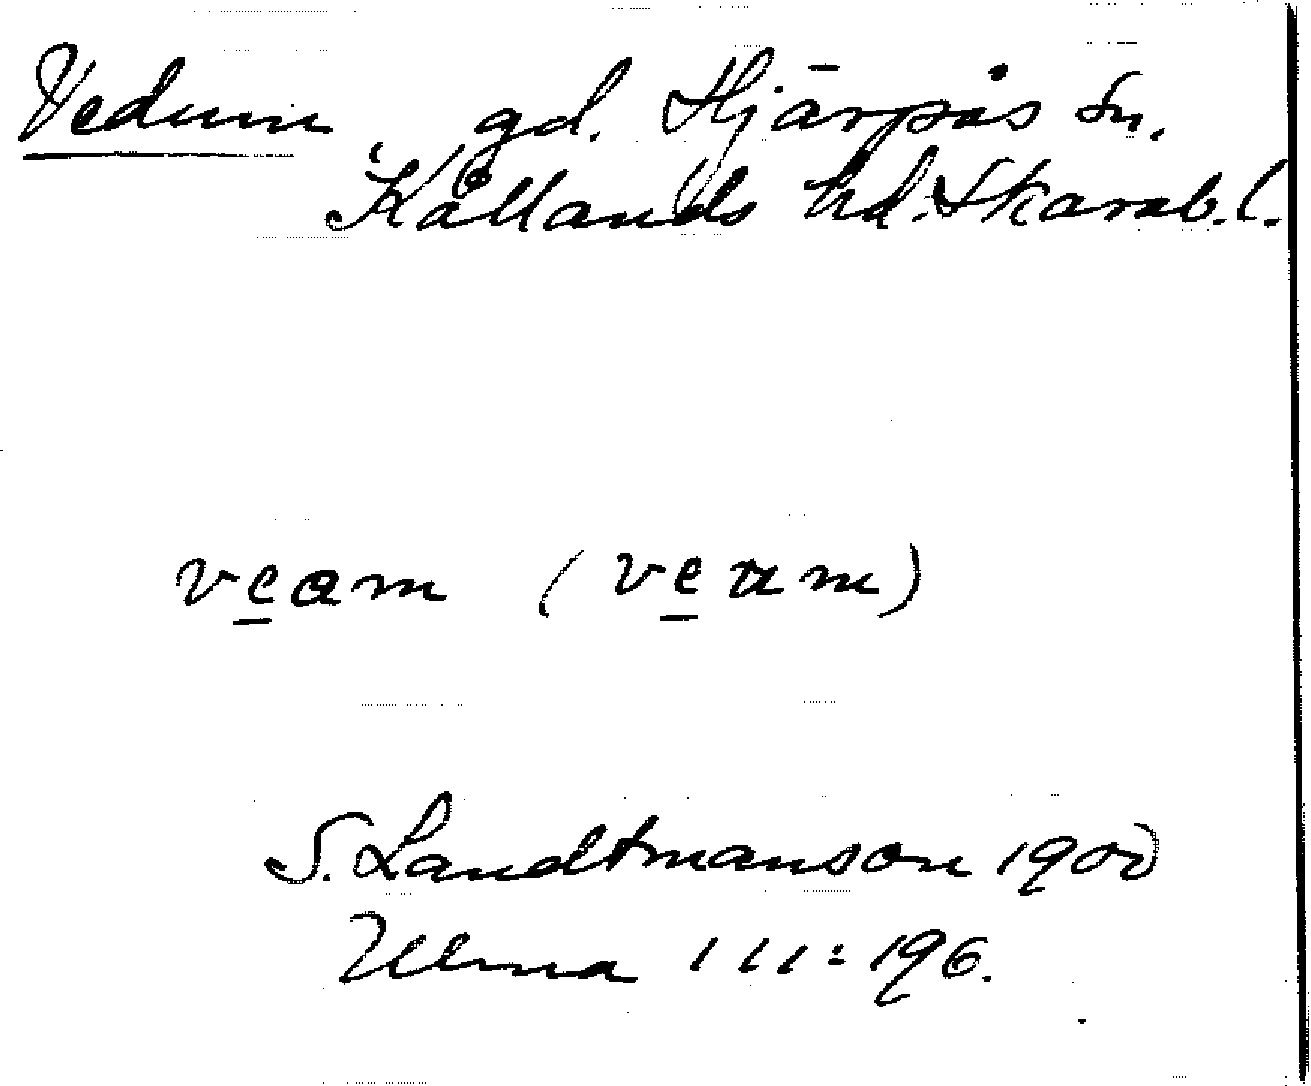 Vedum gd. Hjärpås sn.
Kållands hd. Skarab. l.
veam (veum)
S. Landtmanson 1900
Ulma 111:196.